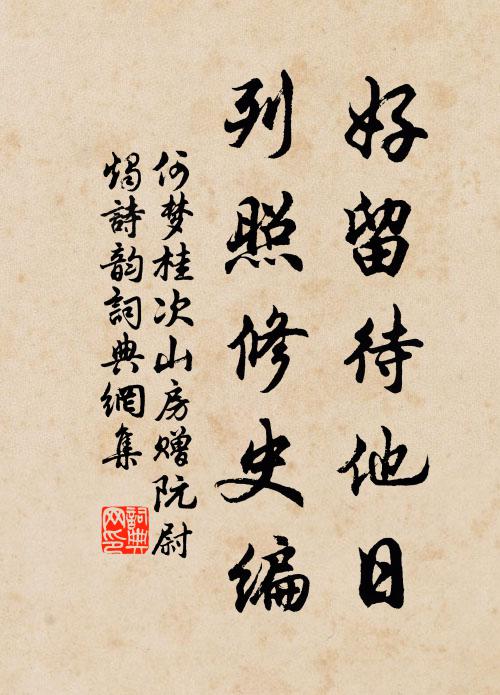 好留待他日
列照修史编
何梦桂次山房赠阮尉
烛詩韵詞典網集
詞典网印